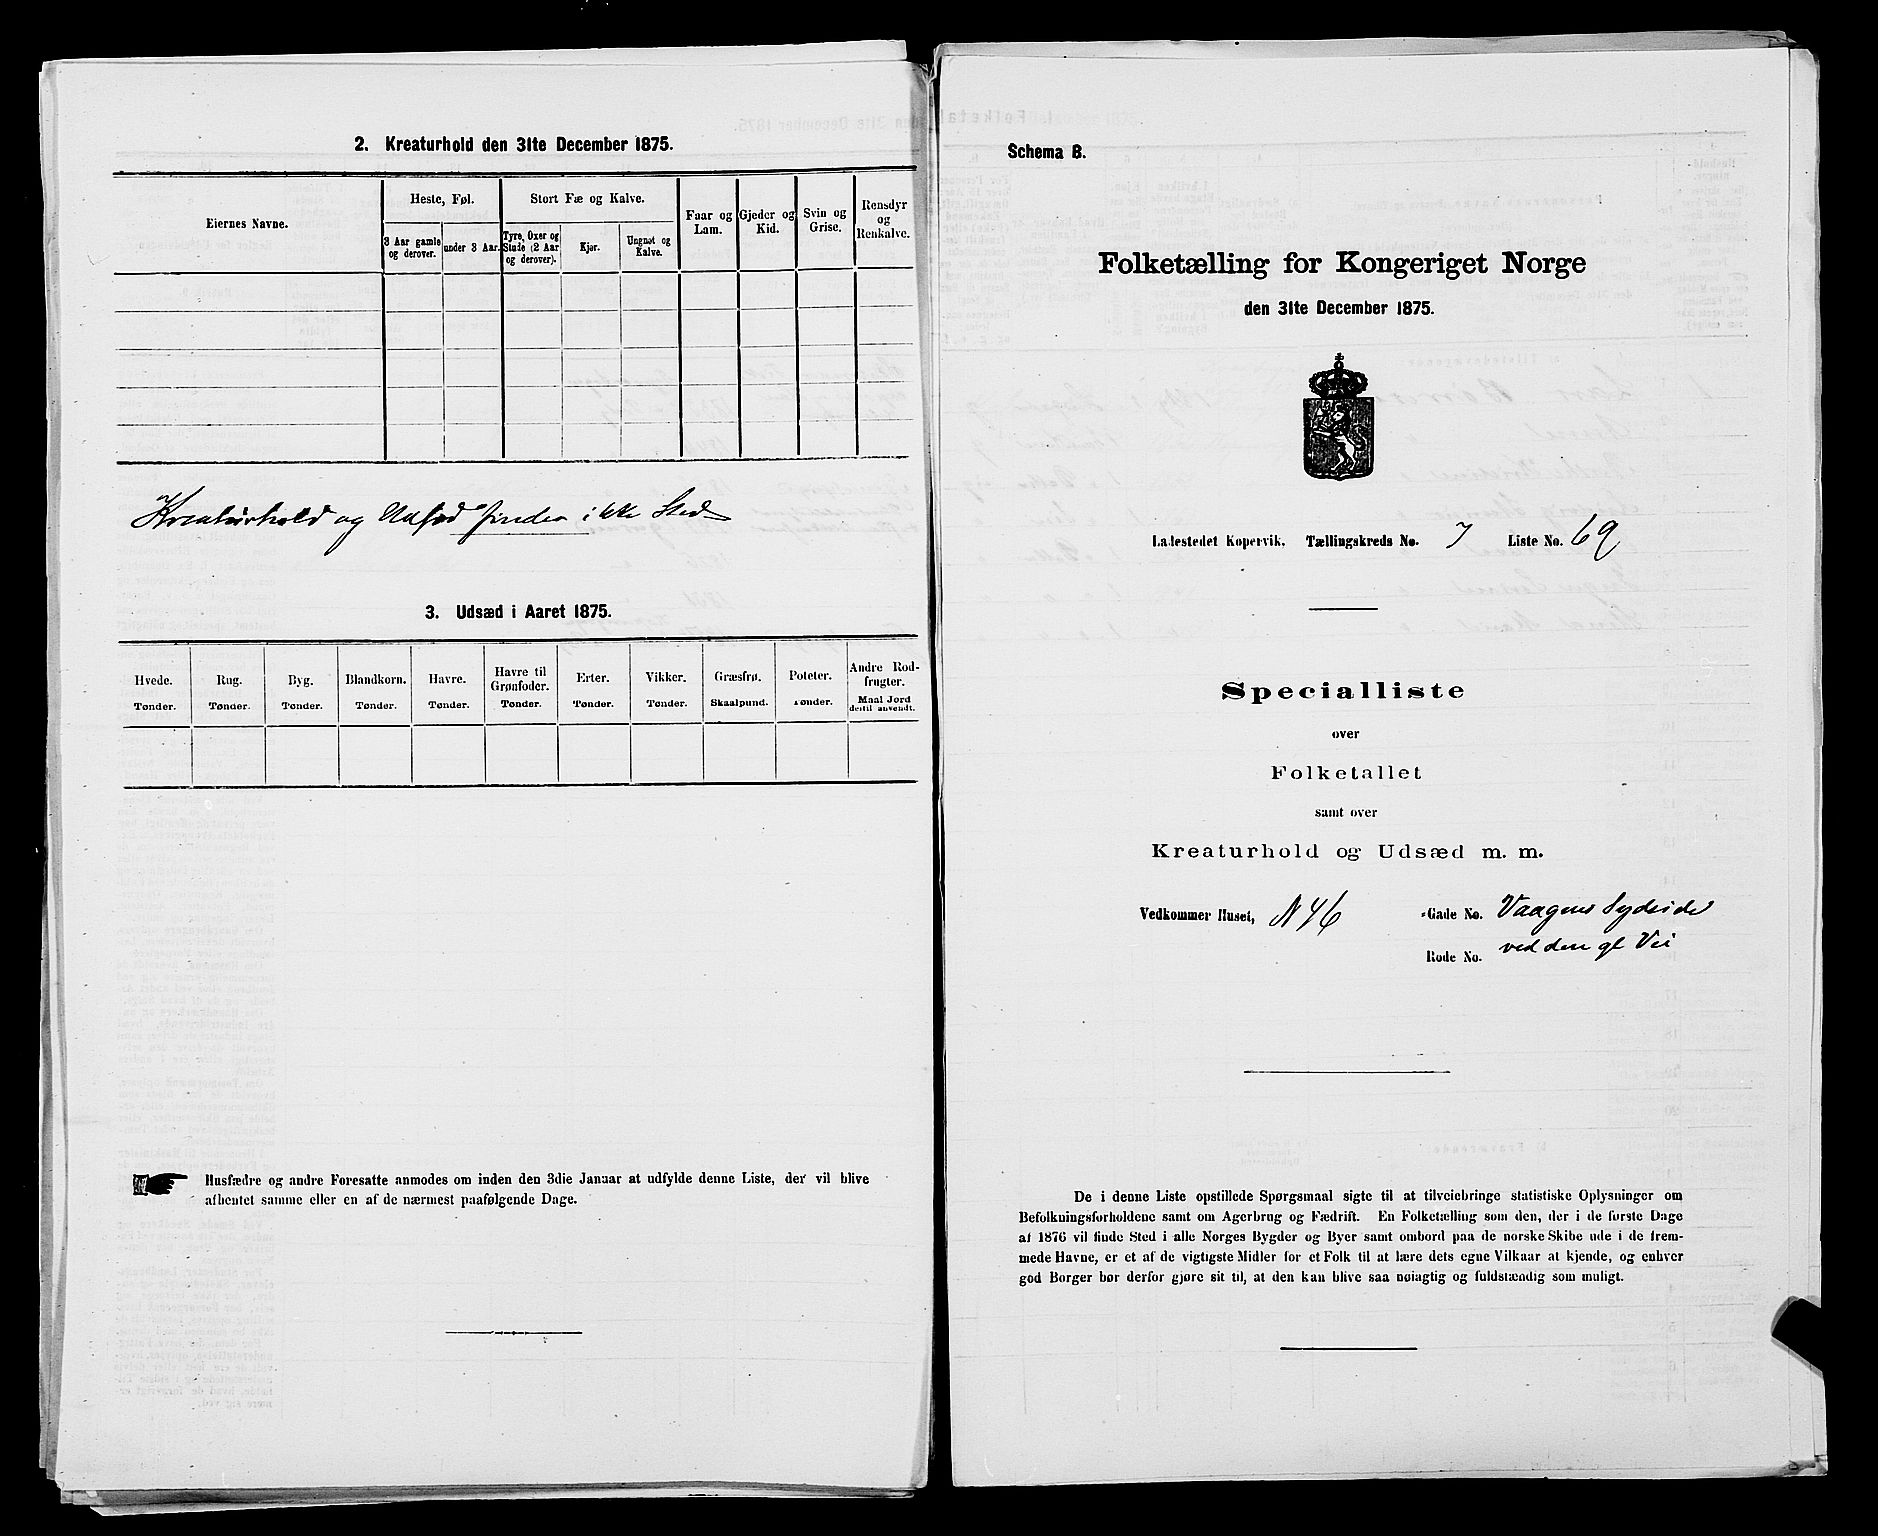 2. Kreaturhold den 31te December 1875.
Eiernes Navne.
Heste, Føl.
3 Aar gamle og derover.
under 3 Aar.
Stort Fæ og Kalve.
Tyre, Oxer og Stude (2 Aar og derover).
Kjør.
Ungnøt og Kalve.
Faar og Lam.
Gjeder og Kid.
Svin og Grise.
Rensdyr og Renkalve.
Kreaturhold og Udsæd finder ikke Sted
3. Udsæd i Aaret 1875.
Hvede. Tønder.
Rug. Tønder.
Byg. Tønder.
Blandkorn. Tønder.
Havre. Tønder.
Havre til Grønfoder. Tønder.
Erter. Tønder.
Vikker. Tønder.
Græsfrø. Skaalpund.
Poteter. Tønder.
Andre Rodfrugter. Maal Jord dertil anvendt.
Husfædre og andre Foresatte anmodes om inden den 3die Januar at udfylde denne Liste, der vil blive
afhentet samme eller en af de nærmest paafølgende Dage.
Schema B.
Folketælling for Kongeriget Norge
den 31te December 1875.
Ladestedet Kopervik. Tællingskreds No. 7 Liste No. 69
Specialliste
over
Folketallet
samt over
Kreaturhold og Udsæd m. m.
Vedkommer Huset, N 46 -Gade No. Vaagens Sydside
Rode No. ved den gl Vei
De i denne Liste opstillede Spørgsmaal sigte til at tilveiebringe statistiske Oplysninger om
Befolkningsforholdene samt om Agerbrug og Fædrift. En Folketælling som den, der i de første Dage
af 1876 vil finde Sted i alle Norges Bygder og Byer samt ombord paa de norske Skibe ude i de frem-
mede Havne, er et af de vigtigste Midler for et Folk til at lære dets egne Vilkaar at kjende, og enhver
god Borger bør derfor gjøre sit til, at den kan blive saa nøiagtig og fuldstændig som muligt.